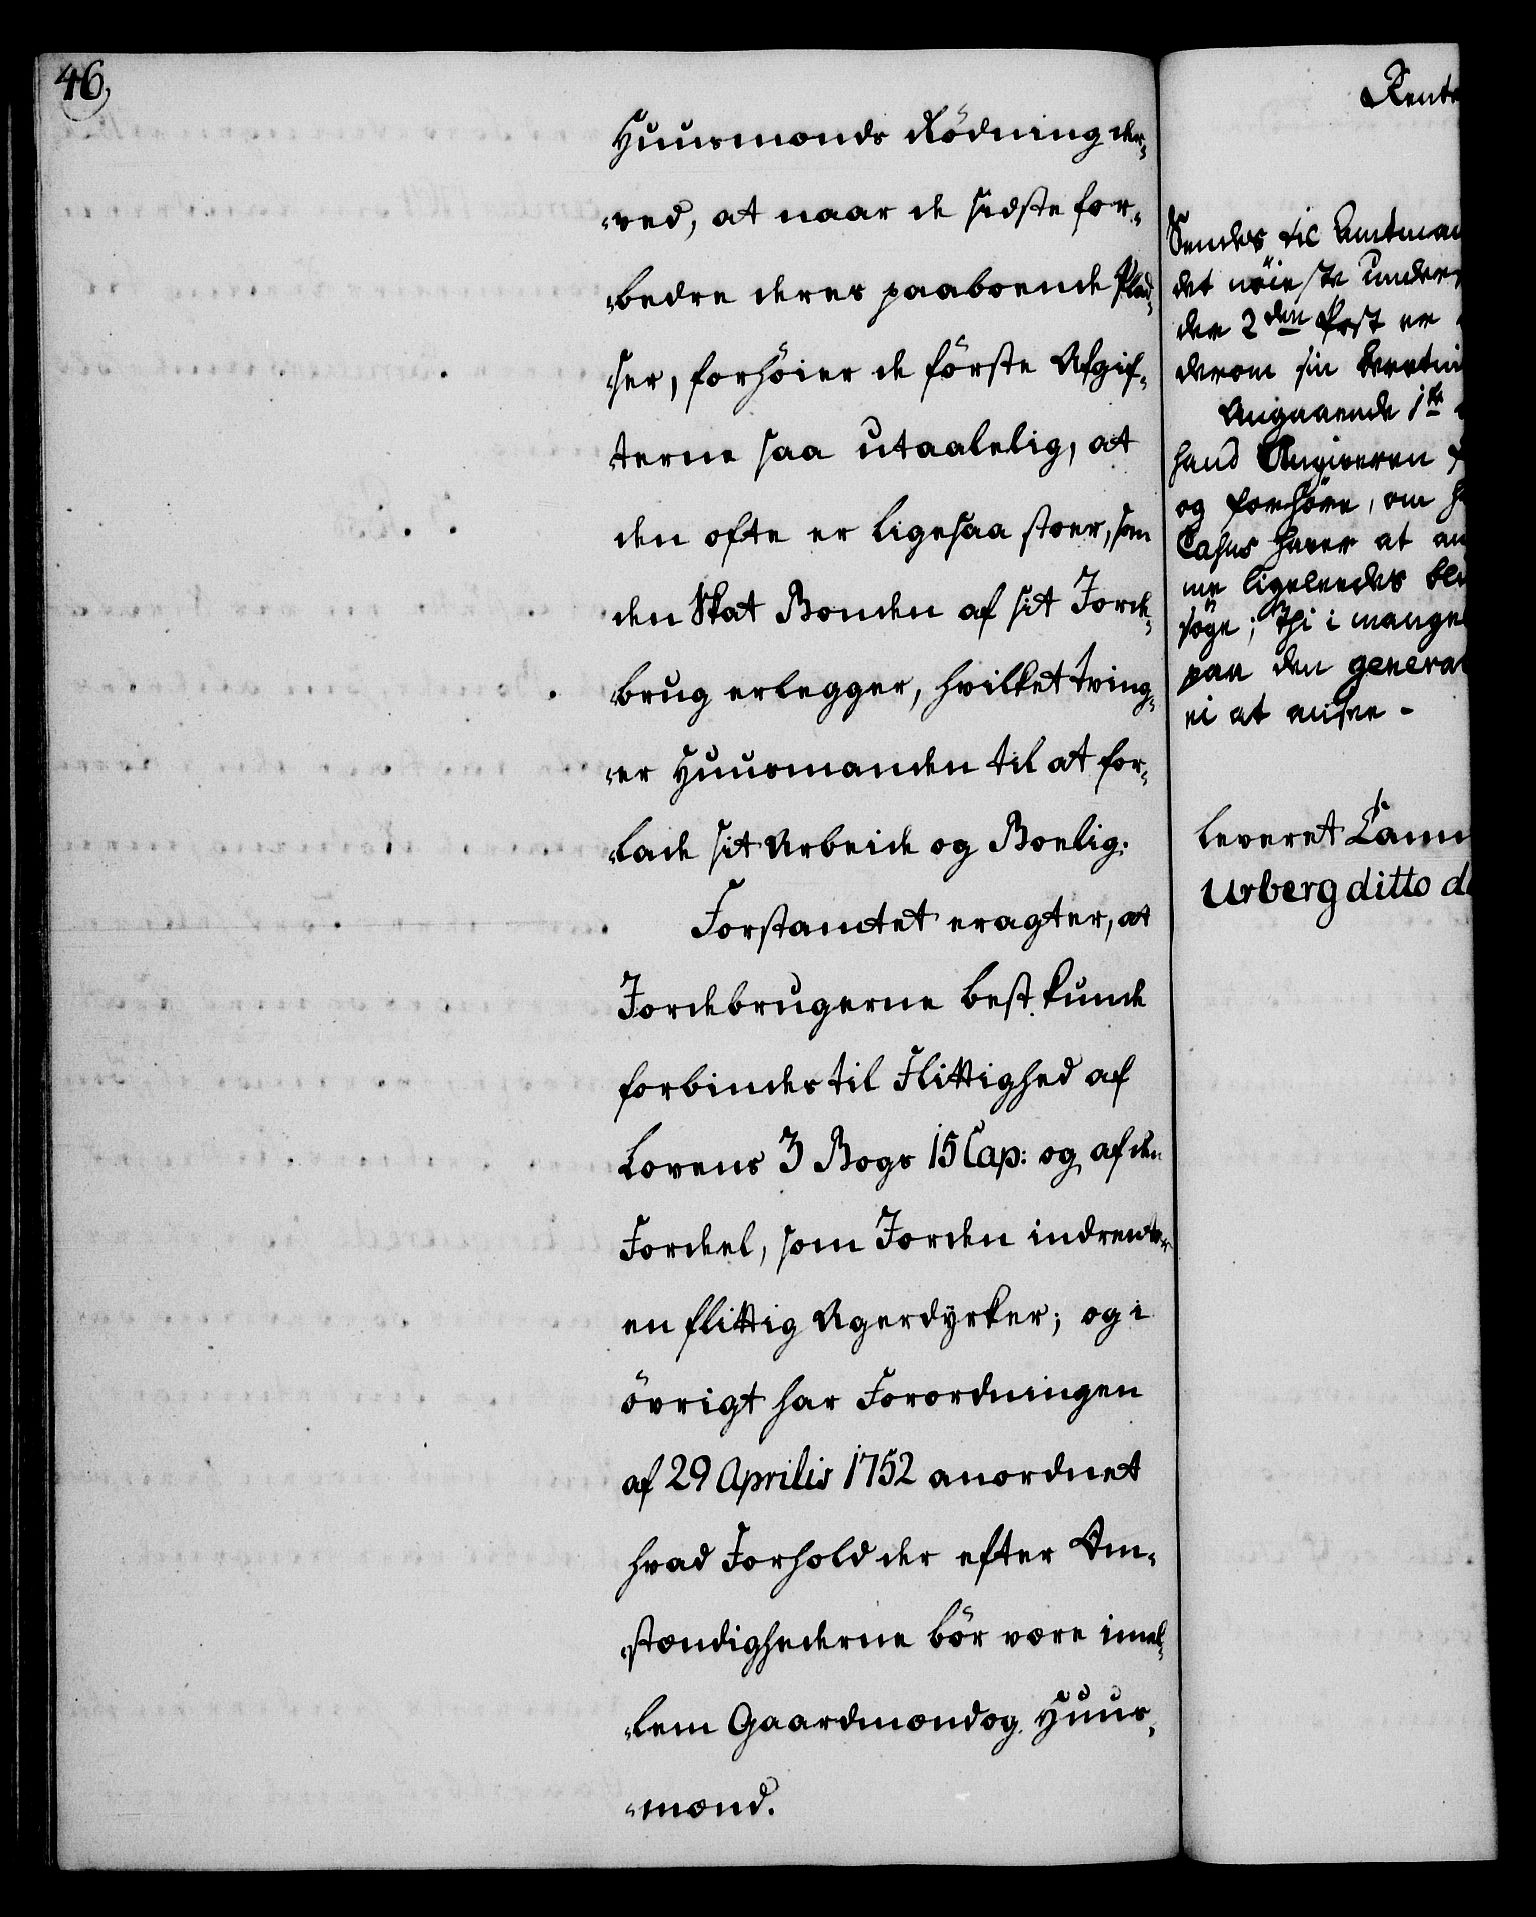 46.
Huusmænds Rödning der-
-ved, at naar de sidste for-
-bedre deres paaboende Plad-
-ser, forhöier de förste Afgif-
terne saa utaalelig, at
den ofte er ligesaa stoer, som
den Skat Bonden af sit Jorde-
-brug erlegger, hvilket tving-
-er Huusmanden til at for-
-lade sit Arbeide og Boelig.
Forstamtet eragter, at
Jordebrugerne best kunde
forbindes til Flittighed af
Lovens 3 Bogs 15 Cap: og af den
Fordeel, som Jorden indrenter
en flittig Agerdyrker; og i
övrigt har Forordningen
af 29 Aprilis 1752 anordnet
hvad Forhold der efter Om-
-stændighederne bör være imel-
-lem Gaardmænd og Huus-
-mænd.
Rente
Sendes til Amtman
det nöieste under
der 2den Post er
derom sin Beretni
Angaaende 1te
hand Angiveren
og forhöre, om h
Casus haver at an
me ligeledes
söge; thi i mangel
paa den general
ei at
leveret
Urberg ditto d